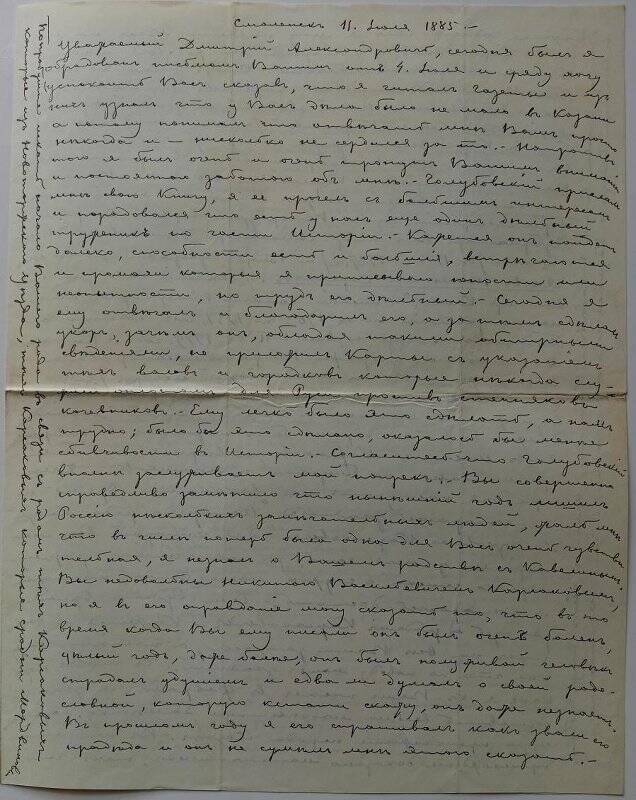 Смоленскъ 11. Іюля 1885.-
Уважаемый Дмитрій Александровичъ, сегодня былъ я
обрадованъ письмомъ Вашимъ отъ 4. Іюля и сразу могу
успокоить Васъ сказавъ, что я читалъ газеты и изъ
нихъ узналъ что у Васъ дѣла было не мало въ Казани
а потому понималъ что отвѣчать мнѣ Вамъ просто
нѣкогда и — нисколько не сердился за то.- Напротивъ
того я былъ очень и очень тронутъ Вашимъ вниманіемъ
и постоянною заботою обо мнѣ.- Голубовскій прислалъ
мнѣ свою Книгу, я ее прочелъ съ большимъ интересомъ
и порадовался что есть у насъ еще одинъ дѣльный
труженикъ по части Исторіи.- Кажется онъ пойдетъ
далеко, способности есть и большія, встрѣчаются
и промахи которыя я приписываю юности или
неопытности, но трудъ его дѣльный.- Сегодня я
ему отвѣчалъ и благодарилъ его, а за тѣмъ сдѣлалъ
укоръ, зачѣмъ онъ, обладая такими обширными
свѣденіями, не приложилъ Карты съ указаніемъ
тѣхъ валовъ и городковъ которые нѣкогда слу-
жили оплотомъ для Руси противъ степняковъ
кочевниковъ.- Ему легко было это сдѣлать, а намъ
трудно; было бы это сдѣлано, оказалось бы менѣе
сбивчивости въ Исторіи.- Согласитесь что Голубовскій
вполнѣ заслуживаетъ мой попрекъ.- Вы совершенно
справедливо замѣтили что нынѣшній годъ лишилъ
Россію нѣсколькихъ замѣчательныхъ людей, жаль мнѣ
что въ числѣ потерь была одна для Васъ очень чувстви-
тельная, я незналъ о Вашемъ родствѣ съ Кавелинымъ.
Вы недовольны Никитою Васильевичемъ Корсаковымъ,
но я въ его оправданіе могу сказать то, что въ то
время когда Вы ему писали онъ былъ очень боленъ,
цѣлый годъ, даже болѣе, онъ былъ полуживой человѣкъ
страдалъ удушіемъ и едва ли думалъ о своей родо-
словной, которую кстати скажу, онъ даже незналъ.-
Въ прошломъ году я его спрашивалъ какъ звали его
прадѣда и онъ не сумѣлъ мнѣ этого сказать.-
начало Вашего рода въ связи съ родомъ тѣхъ Корсаковыхъ
которые изъ Новоторжскаго Уѣзда, тѣхъ Корсаковыхъ которые сродни